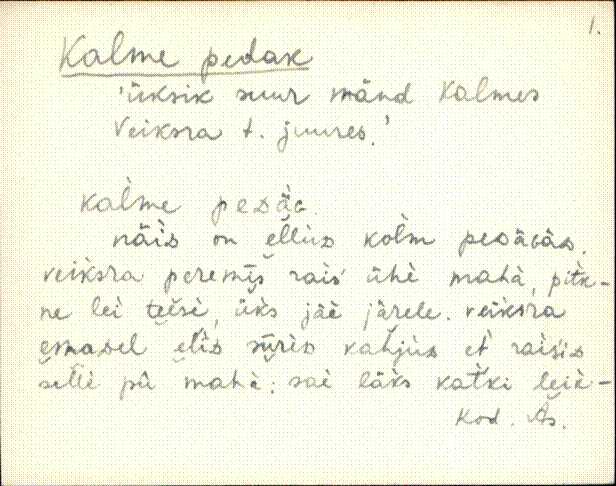 1.
Kalme pedak
'üksik suur mänd Kalmes
Veiksra t. juures.'
kal̀me pedäG.
näiD on ellüD kol̀m pedäGäD.
veik̀sra peremīs rais' ühè mahà, pitk-
ne lei teisè, ük̀s jäè järele. veik̀sra
emaDel eliD sūrèD kahjuD et̀ raisiD
selle pū mahà: saè läk̀s katki leik̀-
Kod. Äs.